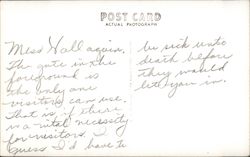 POST CARD
ACTUAL PHOTOGRAPH
Miss Hall again.
The gate in the
foreground is
the only one
visitors can use.
That is if there
is a vital necessity
for visitors. I
guess I'd have to
be sick unto
death before
they would
let you in.